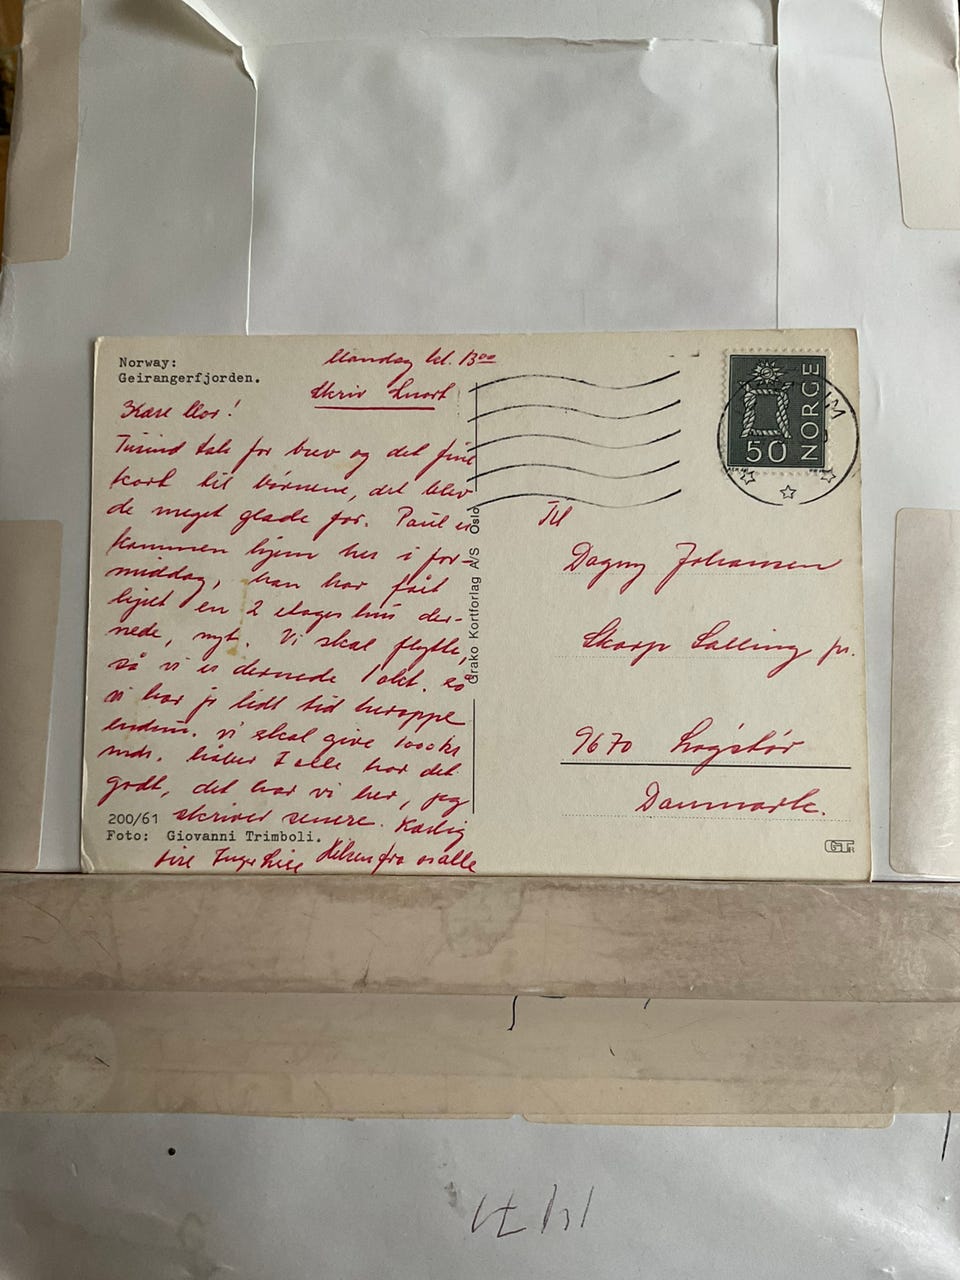 Norway:
Geirangerfjorden.
Mandag kl. 13⁰⁰
Skriv snart
Kære Mor!
Tusind tak for brev og det fine
kort til børnene, det blev
de meget glade for. Paul er
kommen hjem her i for-
middag, han har fået
lejet en 2 etages hus der-
nede, nyt. Vi skal flytte,
så vi er dernede 1 okt. så
vi har jo lidt tid heroppe
endnu. vi skal give 1000 kr
mdr. håber I alle har det
godt, det har vi her, jeg
skriver senere. Kærlig
Hilsen fra os alle
Inger Lise
200/61
Foto: Giovanni Trimboli.
Grako Kortforlag A/S Oslo
NORGE
50
Til
Dagny Johansen
Skarp Salling pr.
9670 Løgstør
Danmark.